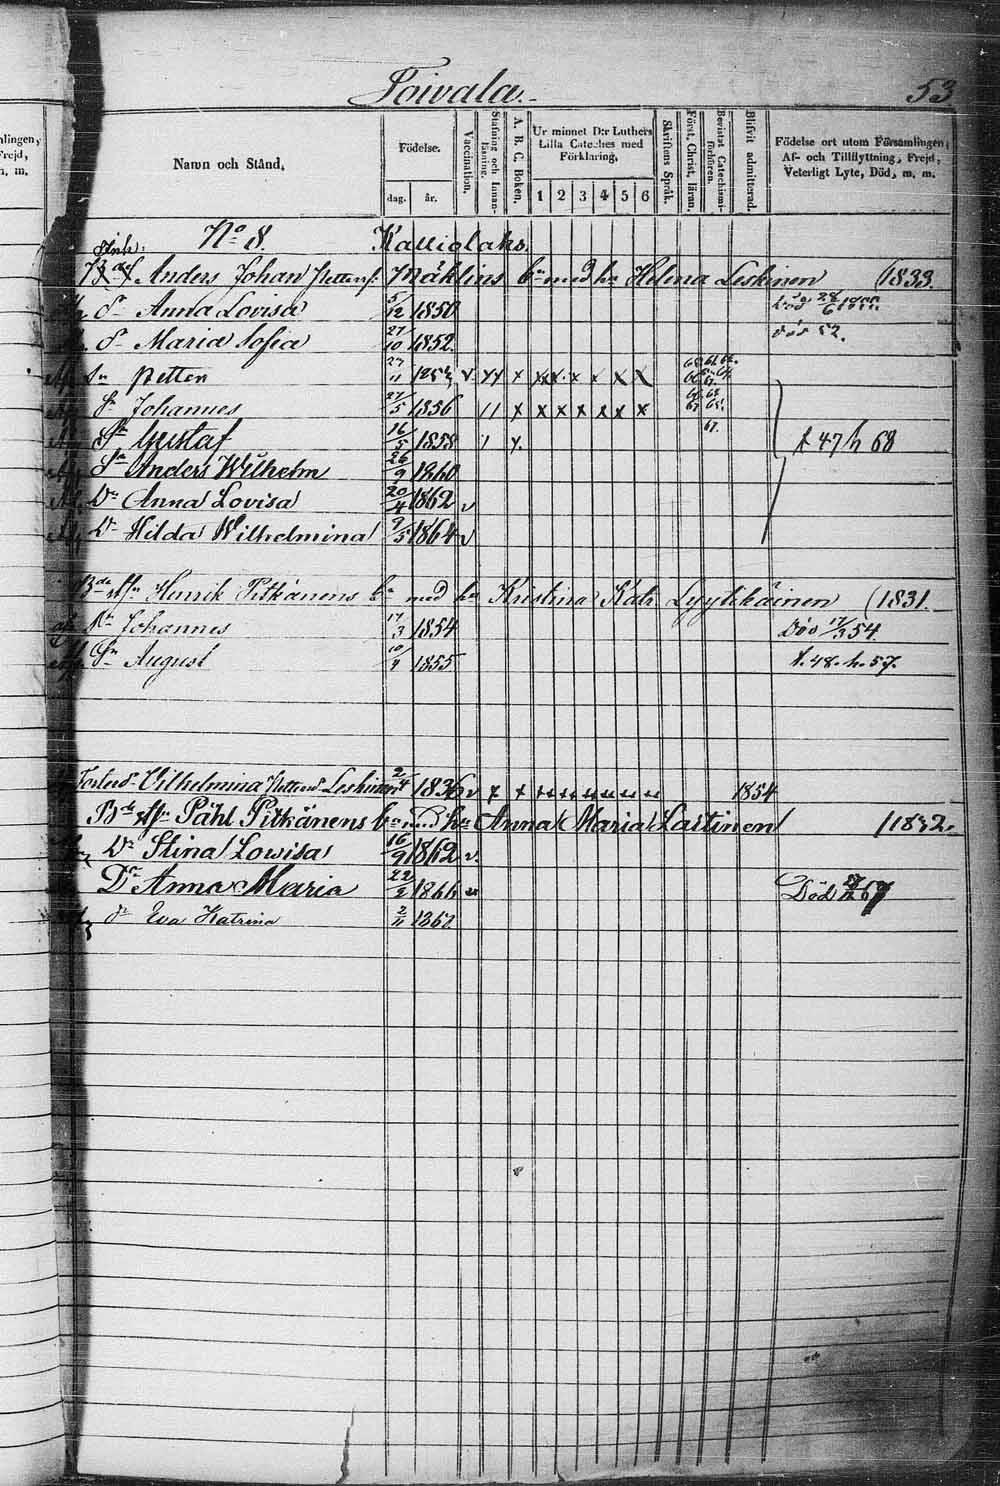 Toivala.
53
Namn och Stånd,
Födelse.
dag. år.
Vaccination.
Stafning och Innan-läsning.
A. B. C. Boken.
Ur minnet D:r Luthers Lilla Cateches med Förklaring,
1 2 3 4 5 6
Skriftens Språk.
Först. Christ. läran.
Bevistat Catechismi-förhören.
Blifvit admitterad.
Födelse ort utom Församlingen, Af- och Tillflyttning, Frejd, Veterligt Lyte, Död, m. m.
No 8. Kalliolaks.
Anders Johan Pettersf. Mählins bn med ha Helena Leskinen (1833.
Dr Anna Lovisa 5/12 1850 död 28/6
Dr Maria Sofia 27/10 1852. död 52.
Sn Petter 27/11 v x x x x x x x x
Sn Johannes 27/5 1856 11 x x x x x x x
Sn Gustaf 16/5 1858 1 x. f 47 h 68
Sn Anders Wilhelm 26/9 1860
Dr Anna Lovisa 20/4 1862 v
Dr Hilda Wilhelmina 9/5 1864 v
Bde Henrik Pitkänens bn med ha Kristina Katr. Lyytikäinen (1831.
Sn Johannes 17/3 1854 Död 17/3 54
Sn August 10/4 1855 f. 48. h. 57.
Wilhelmina Pettersd. Leskinen 2/4 1836 v x x 1854
Bde Påhl Pitkänens bn med ha Anna Maria Laitinen /1832.
Dr Stina Lowisa 16/9 1862 v.
Dr Anna Maria 22/2 1866 v Död 67
Dr Eva Katrina 2/11 1867.